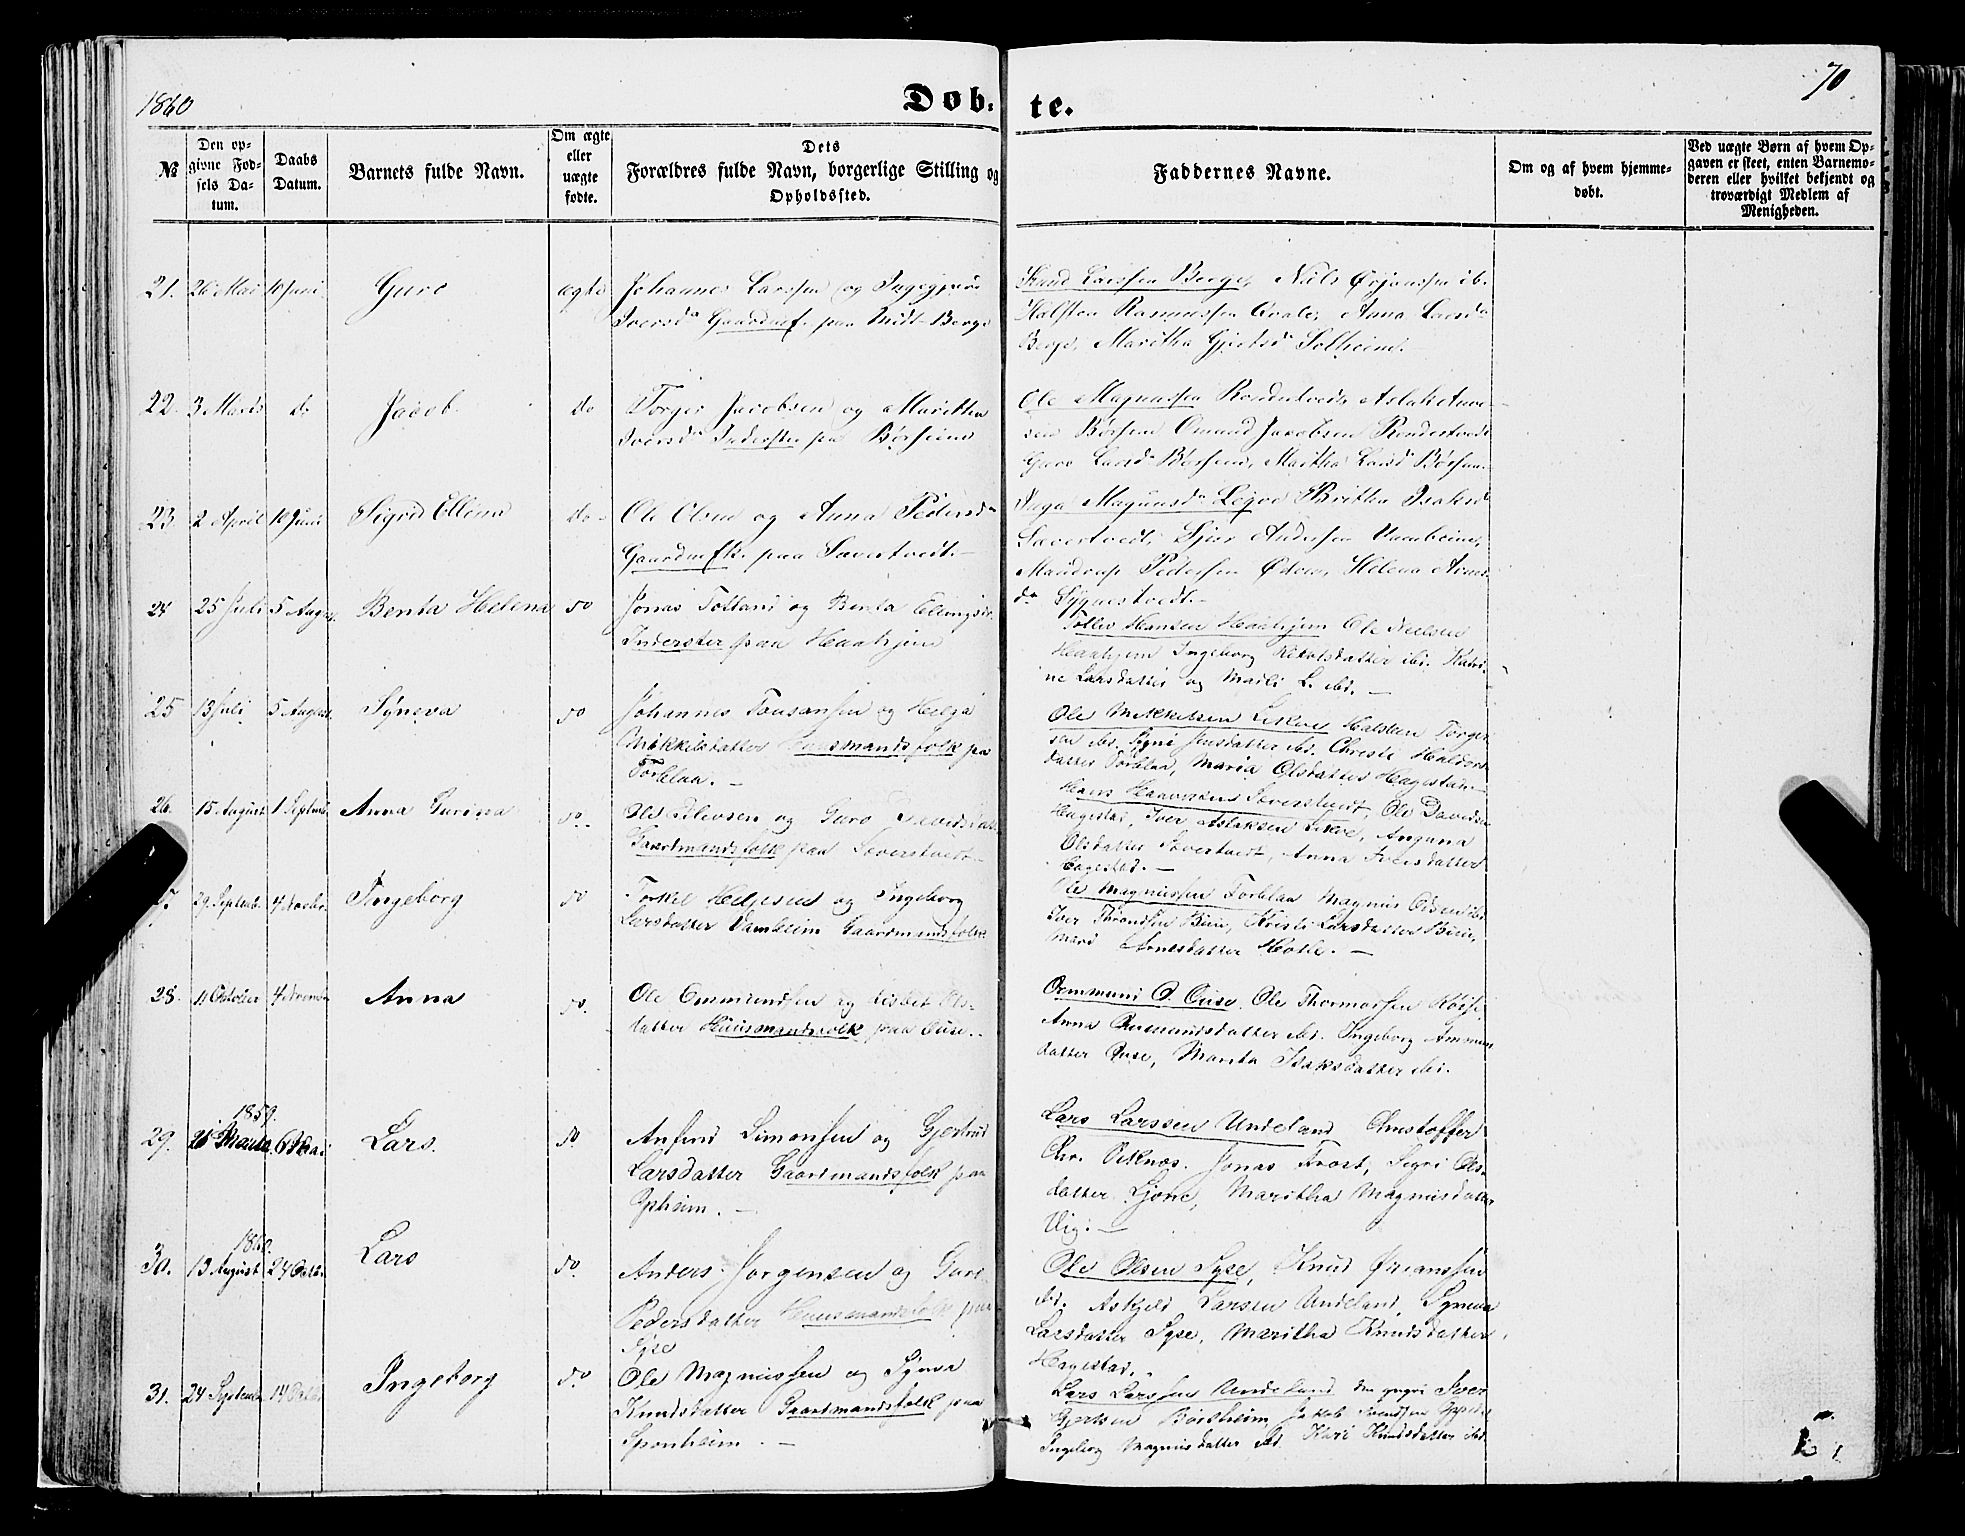 1860
Døb-
te.
70
№
Den op-
givne Fød-
sels Da-
tum.
Daabs
Datum.
Barnets fulde Navn.
Om ægte
eller
uægte
fødte.
Dets
Forældres fulde Navn, borgerlige Stilling og
Opholdssted.
Faddernes Navne.
Om og af hvem hjemme-
døbt.
Ved uægte Børn af hvem Op-
gaven er skeet, enten Barnemo-
deren eller hvilket bekjendt og
troværdigt Medlem af
Menigheden.
21. 26 Mai 10 Juni Guro ægte Johannes Larssen og
Iversd. Gaardmf. paa Midt-Berge
Knud Larssen Berge, Nils Ørjanssen ib.
Halsten Rasmussen Qvale, Anna Larsd
Berge, Maritha Gjertsd Solheim.
22. 3 Marts do Jacob do Torger Jacobsen og Maritha
Iversd Inderster paa Børsheim
Ole Magnussen Aslak
Børsem Omund Jacobsen
Guro Larsd Børsem, Maritha Larsd Børsem
23. 2 April 10 Juni Sigrid Ellina do Ole Olsen og Anna Pedersd
Gaardmfk. paa Sævertvedt.
Inga Magnusd Legve Britha Isaksd
Sævertvedt, Andersen
Pedersen Helena
Sygnestvedt.
24 25 Juli 5 August Benta Helena do Jonas Totland og Benta Ellingsdr
Inderster paa Haahjem
Tollev Hansen Haahjem Ole Nielsen
Haahjem Ingeborg ibi. Katri-
ne Larsdatter og Marli L. ibi.
25 13 Juli 5 August Syneva do Johannes og Helga
Mikkelsdatter Huusmandsfolk paa
Torblaa.
Ole Mikkelsen Lekve Halsten Torger
sen ibi. Jensdatter ibi. Christi Haldors
datter Torblaa, Maria Olsdatter Hagestad
26. 15 August 1 Septemb Anna Gurina do Ole og Guro Davidsdatt
Gaardmandsfolk paa Sæverstvedt
Hans Sæverstvedt, Ole Davidsen
Hagestad, Iver Aslaksen Lekve,
Olsdatter Sævertvedt, Anna Iversdatter
Hagestad.
29. Septemb. 4 Novbr. Ingeborg do Torkel Helgesen og Ingeborg
Larsdatter Vambeim Gaardmandsfolk
Ole Magnussen Torblaa Magnus Olsen ibi
Iver Throndsen Kristi Larsdatter
Arnesdatter
28. 11 October 4 Novemb Anna do. Ole Ommundsen og Lisbet Ols-
datter Huusmandsfolk paa Ouse.
Ommund O. Ouse, Ole
Anna Ommundsdatter ibi. Ingeborg Ammun
datter Ouse, Marita Isaksdatter ibi.
29. 1859. 6 Mai Lars. do Anfind Simonsen og Gjertrud
Larsdatter Gaardmandsfolk paa
Opheim.
Lars Larssen Undeland Christoffer
Chr. Jonas Frost, Sigri Ols-
datter Ljone, Maritha Magnusdatter
Vig.
30. 1860. 13 August 24 Octbr Lars do Anders Jørgensen og Guro
Pedersdatter Huusmandsfolk paa
Syse
Ole Olsen Syse, Knud Ørjanssen
ibi. Askjeld Larsen Undeland, Syneva
Larsdatter Syse, Maritha Knudsdatter
Hagestad.
31. 24 Septemb 14 Octbr Ingeborg do Ole Magnussen og Synva
Knudsdatter Gaardmandsfolk paa
Sponheim.
Lars Larssen Undeland den yngri Iver
Gjertsen Børsheim, Jakob Svendsen
Ingeborg Magnusdatter ibid. Kari Knudsdatter ibid.